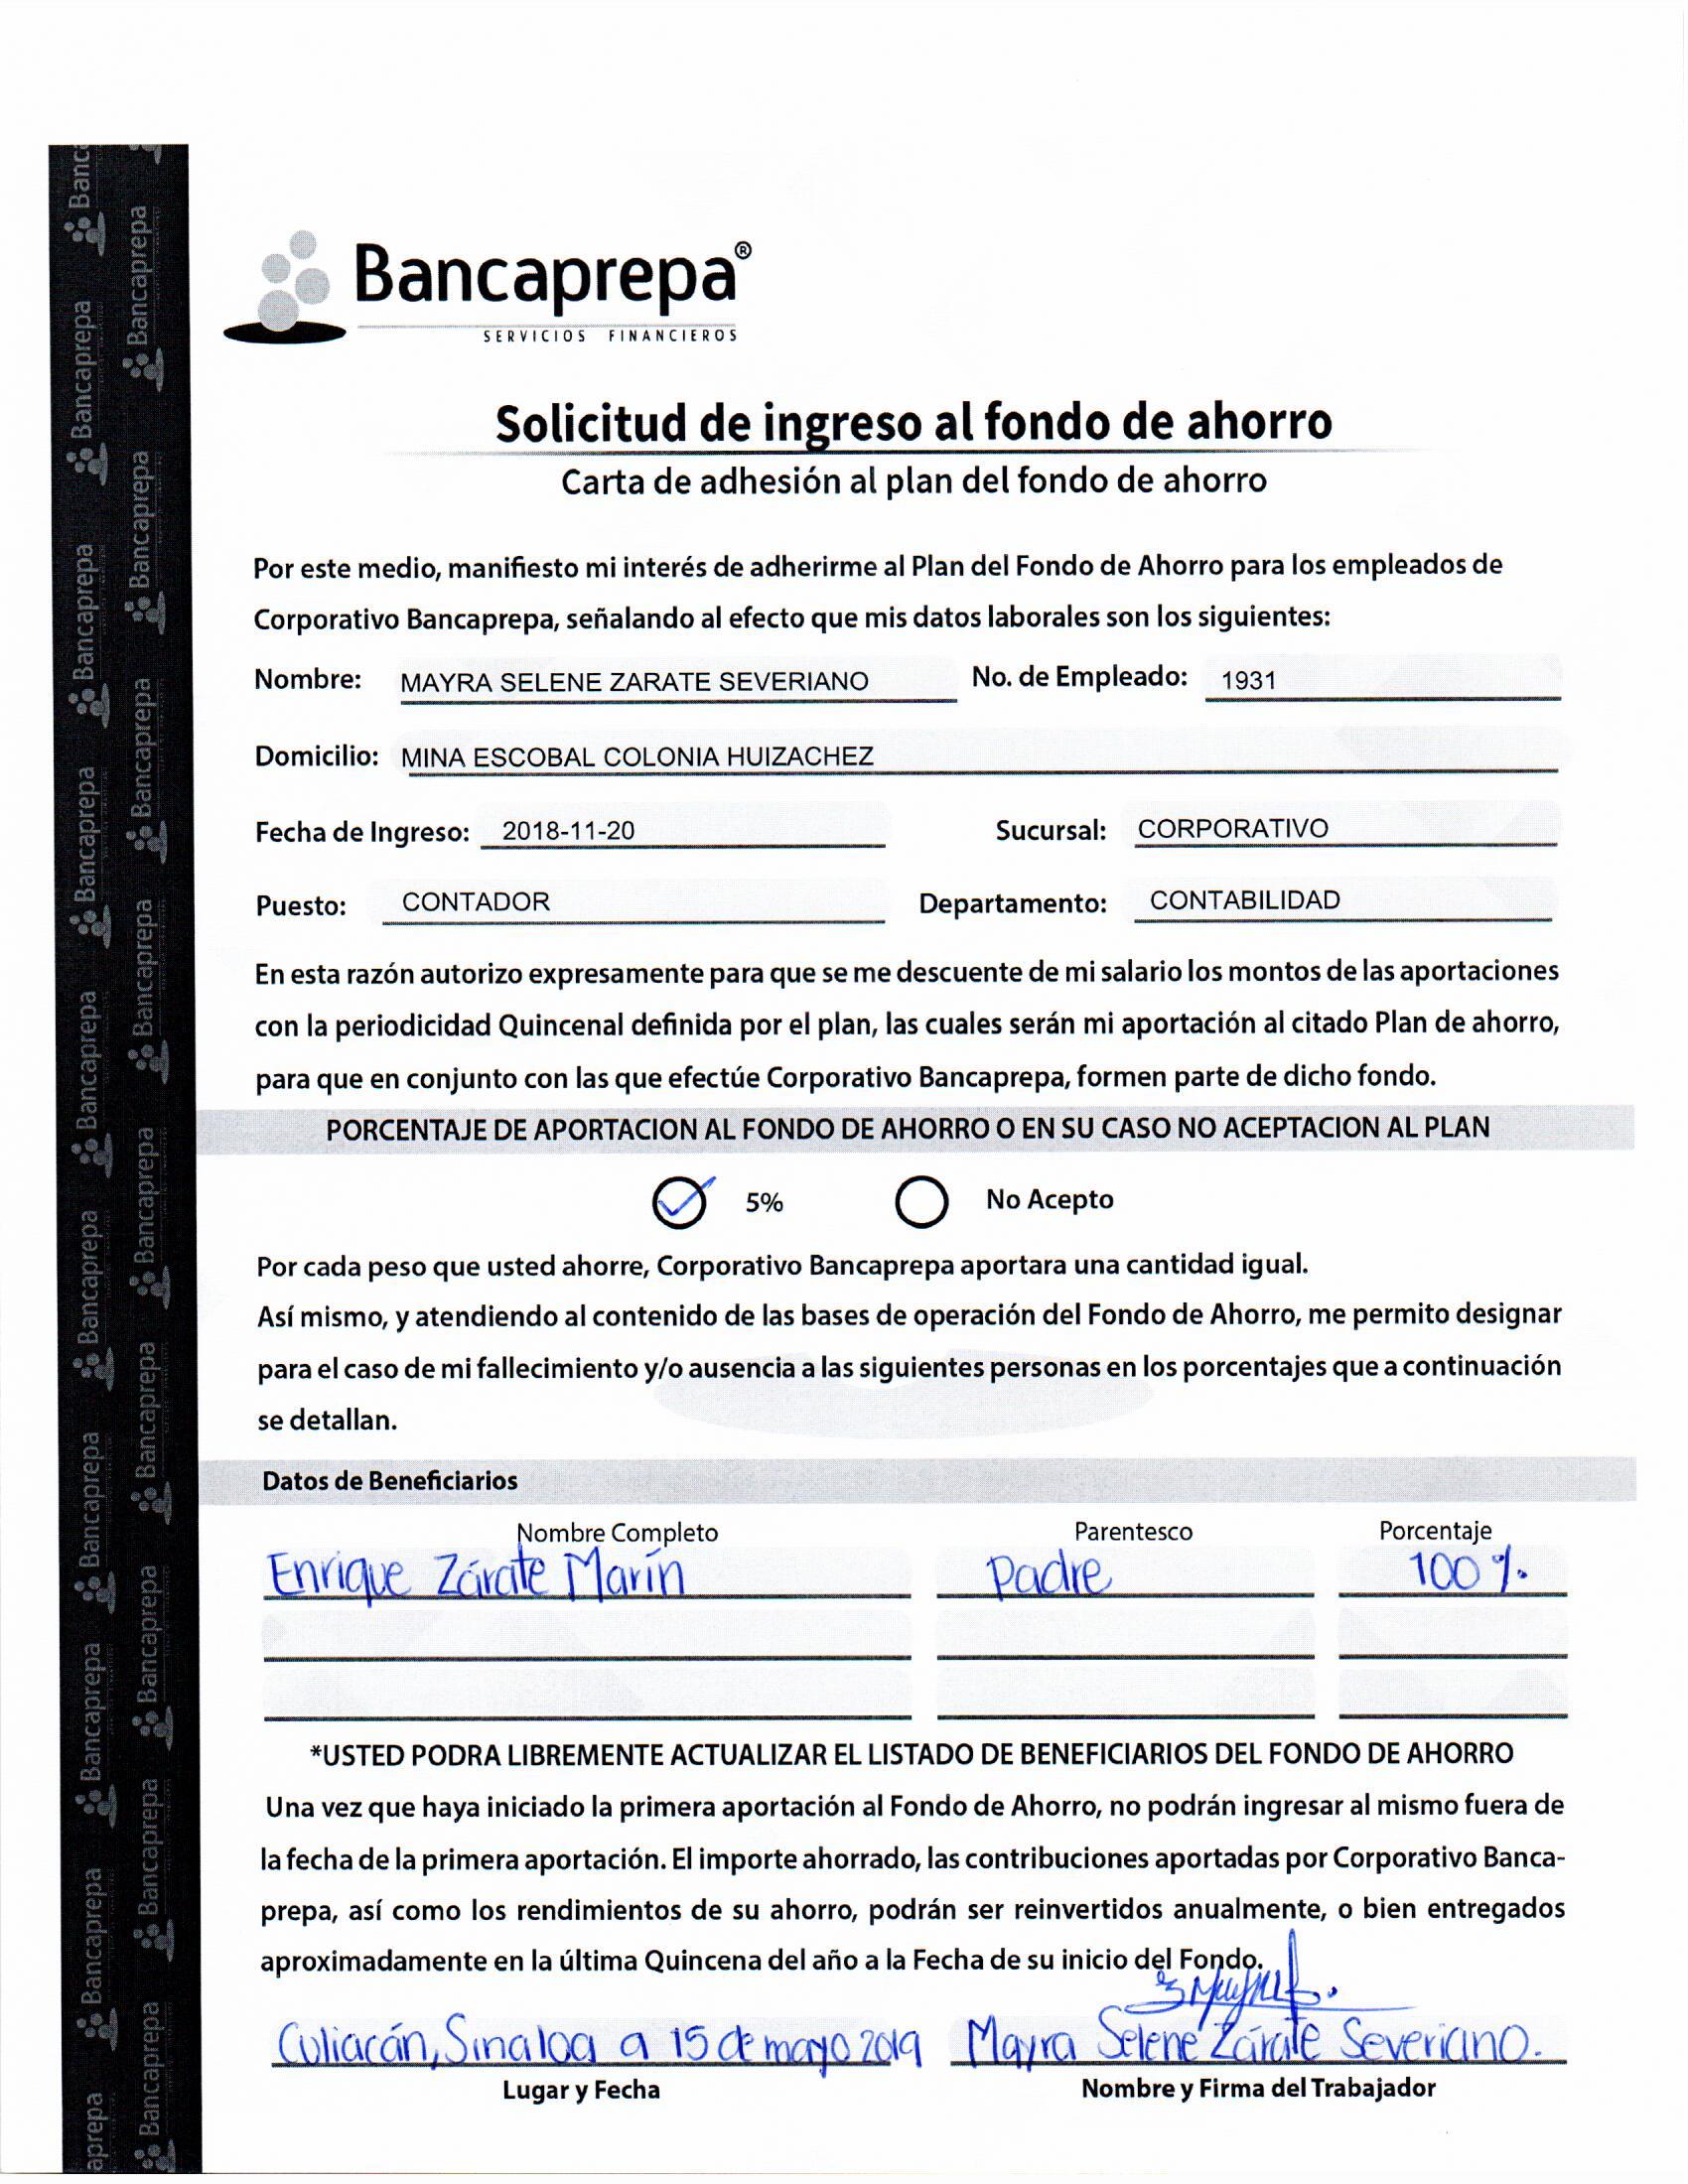 Bancaprepa®
SERVICIOS FINANCIEROS
Solicitud de ingreso al fondo de ahorro
Carta de adhesión al plan del fondo de ahorro
Por este medio, manifiesto mi interés de adherirme al Plan del Fondo de Ahorro para los empleados de
Corporativo Bancaprepa, señalando al efecto que mis datos laborales son los siguientes:
Nombre: MAYRA SELENE ZARATE SEVERIANO No. de Empleado: 1931
Domicilio: MINA ESCOBAL COLONIA HUIZACHEZ
Fecha de Ingreso: 2018-11-20 Sucursal: CORPORATIVO
Puesto: CONTADOR Departamento: CONTABILIDAD
En esta razón autorizo expresamente para que se me descuente de mi salario los montos de las aportaciones
con la periodicidad Quincenal definida por el plan, las cuales serán mi aportación al citado Plan de ahorro,
para que en conjunto con las que efectúe Corporativo Bancaprepa, formen parte de dicho fondo.
PORCENTAJE DE APORTACION AL FONDO DE AHORRO O EN SU CASO NO ACEPTACION AL PLAN
5% No Acepto
Por cada peso que usted ahorre, Corporativo Bancaprepa aportara una cantidad igual.
Así mismo, y atendiendo al contenido de las bases de operación del Fondo de Ahorro, me permito designar
para el caso de mi fallecimiento y/o ausencia a las siguientes personas en los porcentajes que a continuación
se detallan.
Datos de Beneficiarios
Nombre Completo Parentesco Porcentaje
Enrique Zárate Marín Padre 100%
*USTED PODRA LIBREMENTE ACTUALIZAR EL LISTADO DE BENEFICIARIOS DEL FONDO DE AHORRO
Una vez que haya iniciado la primera aportación al Fondo de Ahorro, no podrán ingresar al mismo fuera de
la fecha de la primera aportación. El importe ahorrado, las contribuciones aportadas por Corporativo Banca-
prepa, así como los rendimientos de su ahorro, podrán ser reinvertidos anualmente, o bien entregados
aproximadamente en la última Quincena del año a la Fecha de su inicio del Fondo.
Culiacán, Sinaloa a 15 de mayo 2019 Mayra Selene Zárate Severiano.
Lugar y Fecha Nombre y Firma del Trabajador